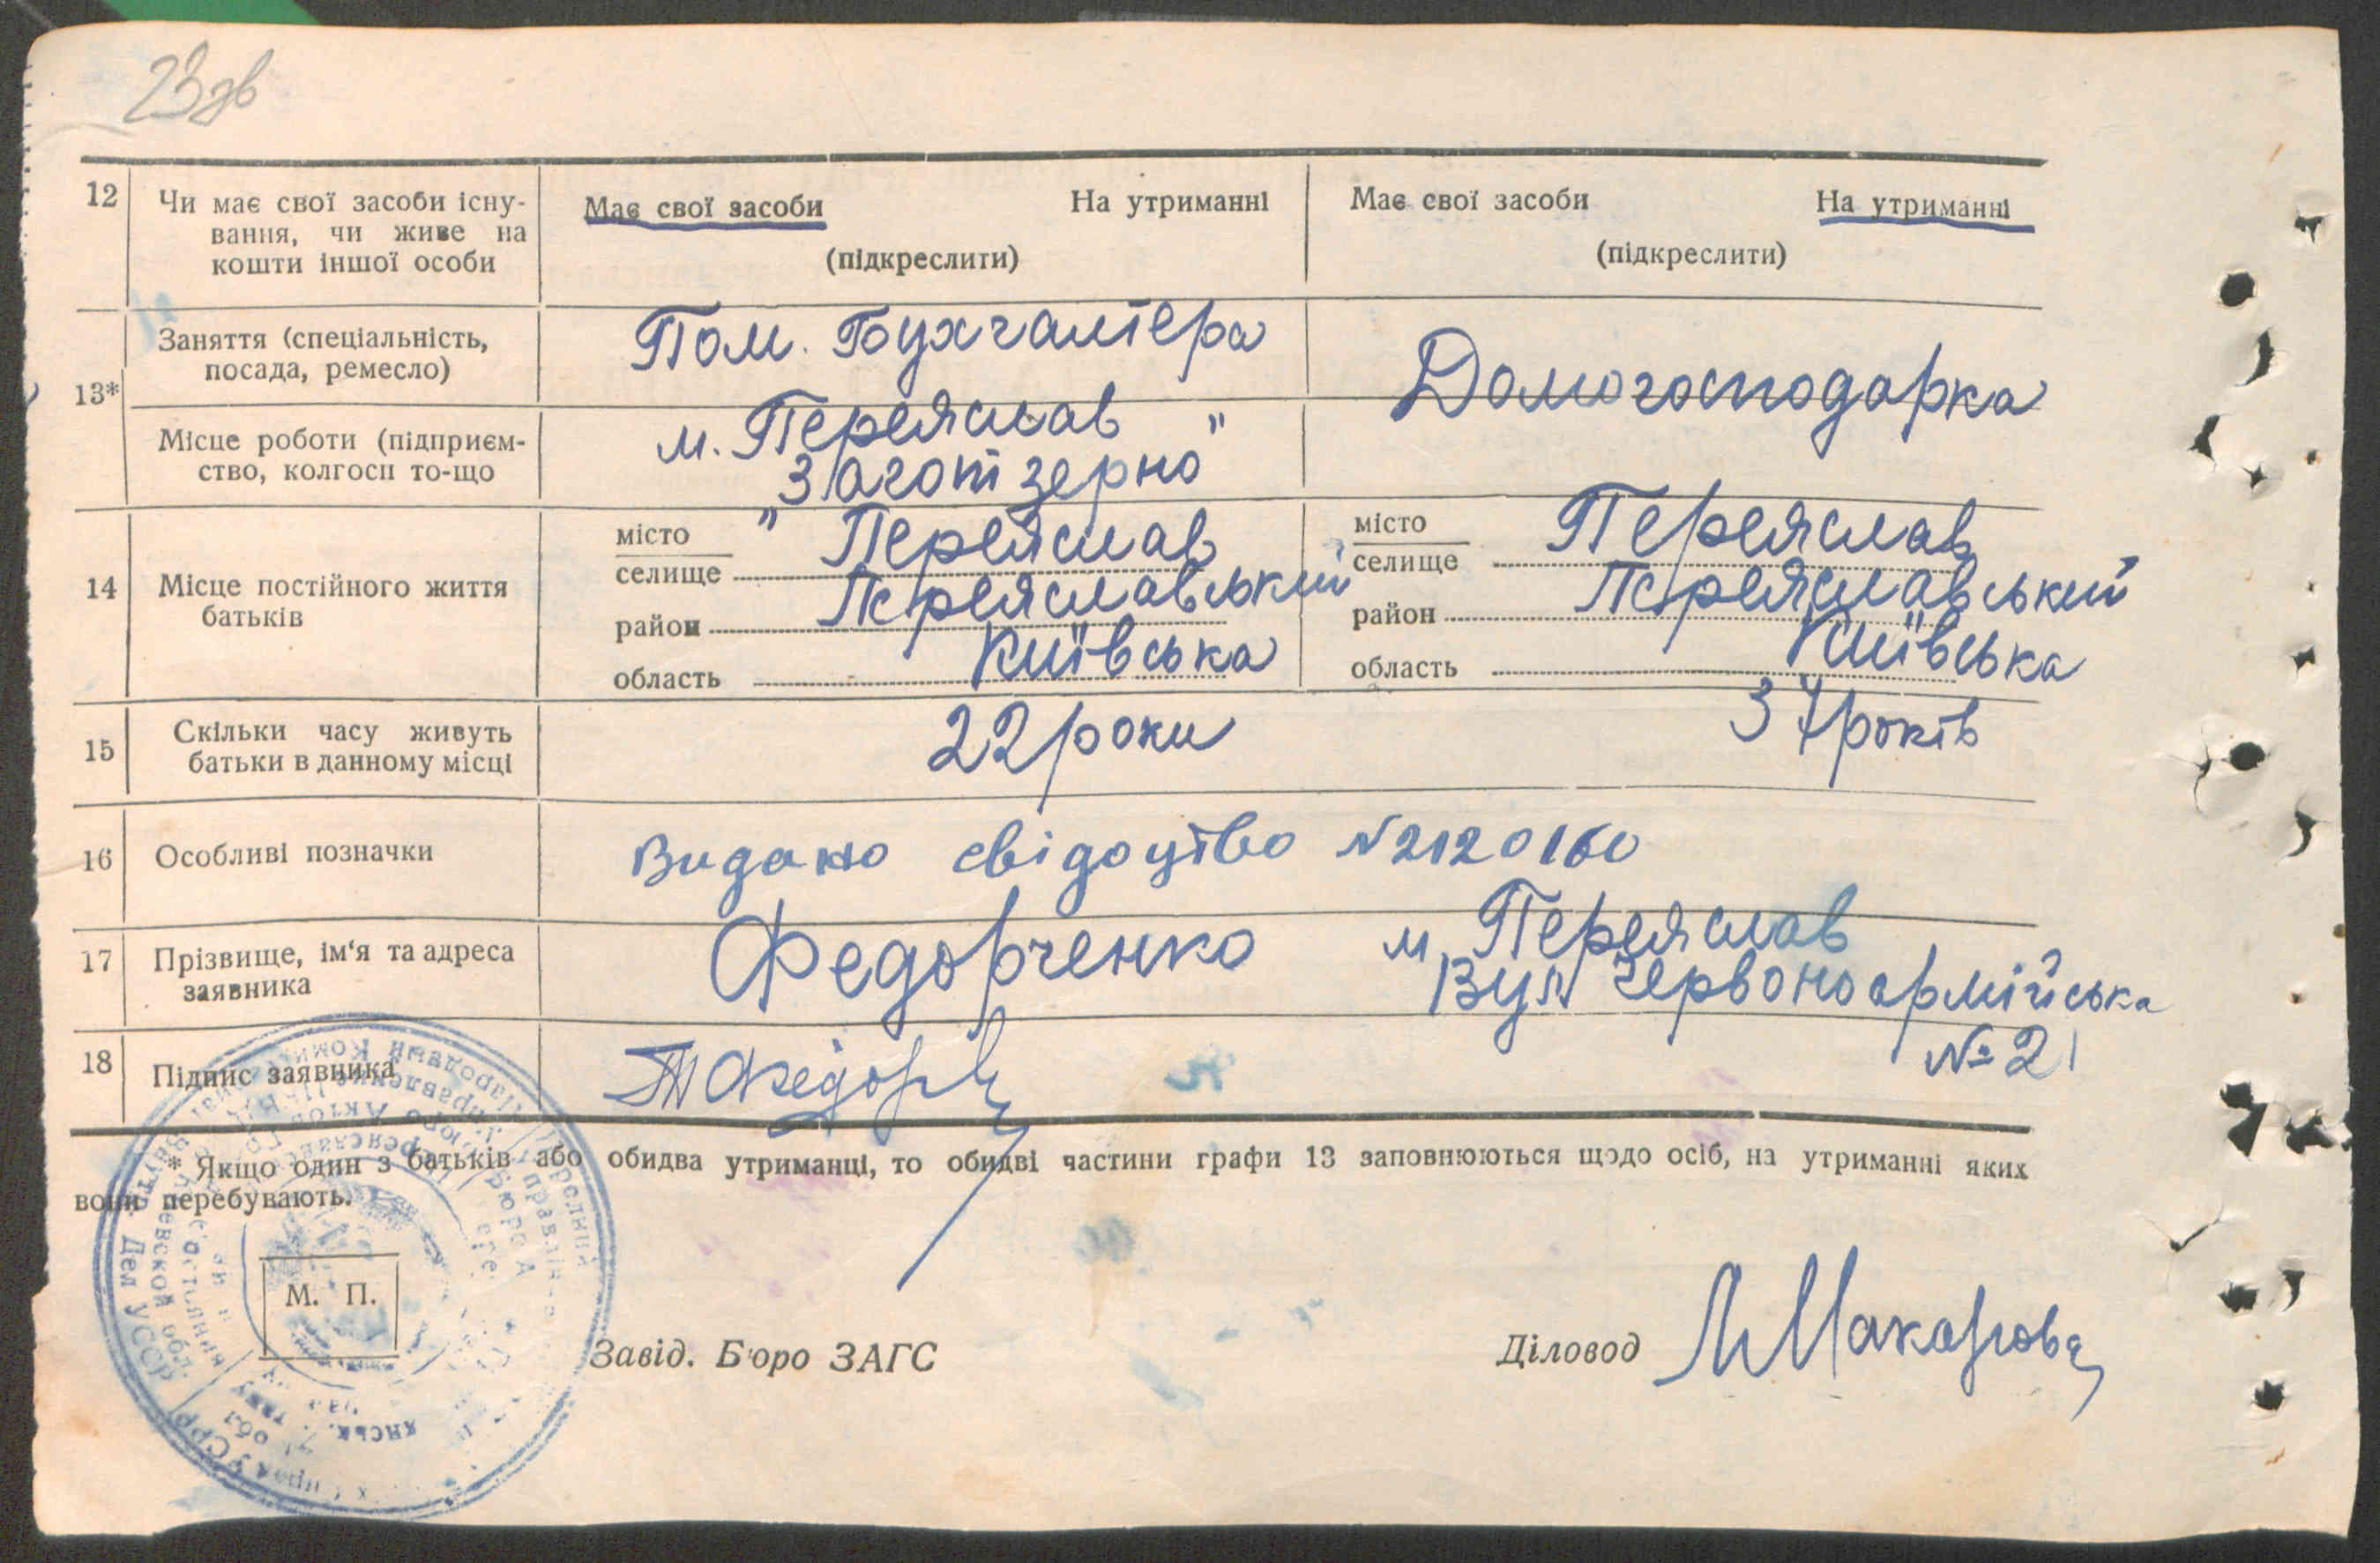 23зв
12 Чи має свої засоби існу-
вання, чи живе на
кошти іншої особи
Має свої засоби На утриманні
(підкреслити)
Має свої засоби На утриманні
(підкреслити)
13*
Заняття (спеціальність,
посада, ремесло)
Пом. Бухгалтера
Домогосподарка
Місце роботи (підприєм-
ство, колгосп то-що
м. Переяслав
"Заготзерно"
14 Місце постійного життя
батьків
місто
селище Переяслав
район Переяславський
область Київська
місто
селище Переяслав
район Переяславський
область Київська
15 Скільки часу живуть
батьки в данному місці
22 роки
37 років
16 Особливі позначки
Видано свідоцтво №2120160
17 Прізвище, ім'я та адреса
заявника
Федорченко м. Переяслав
Вул Червоноармійська
№ 21
18 Підпис заявника
* Якщо один з батьків або обидва утриманці, то обидві частини графи 13 заповнюються щодо осіб, на утриманні яких
вони перебувають.
М. П.
Завід. Бюро ЗАГС
Діловод Макарова
Дел УССР